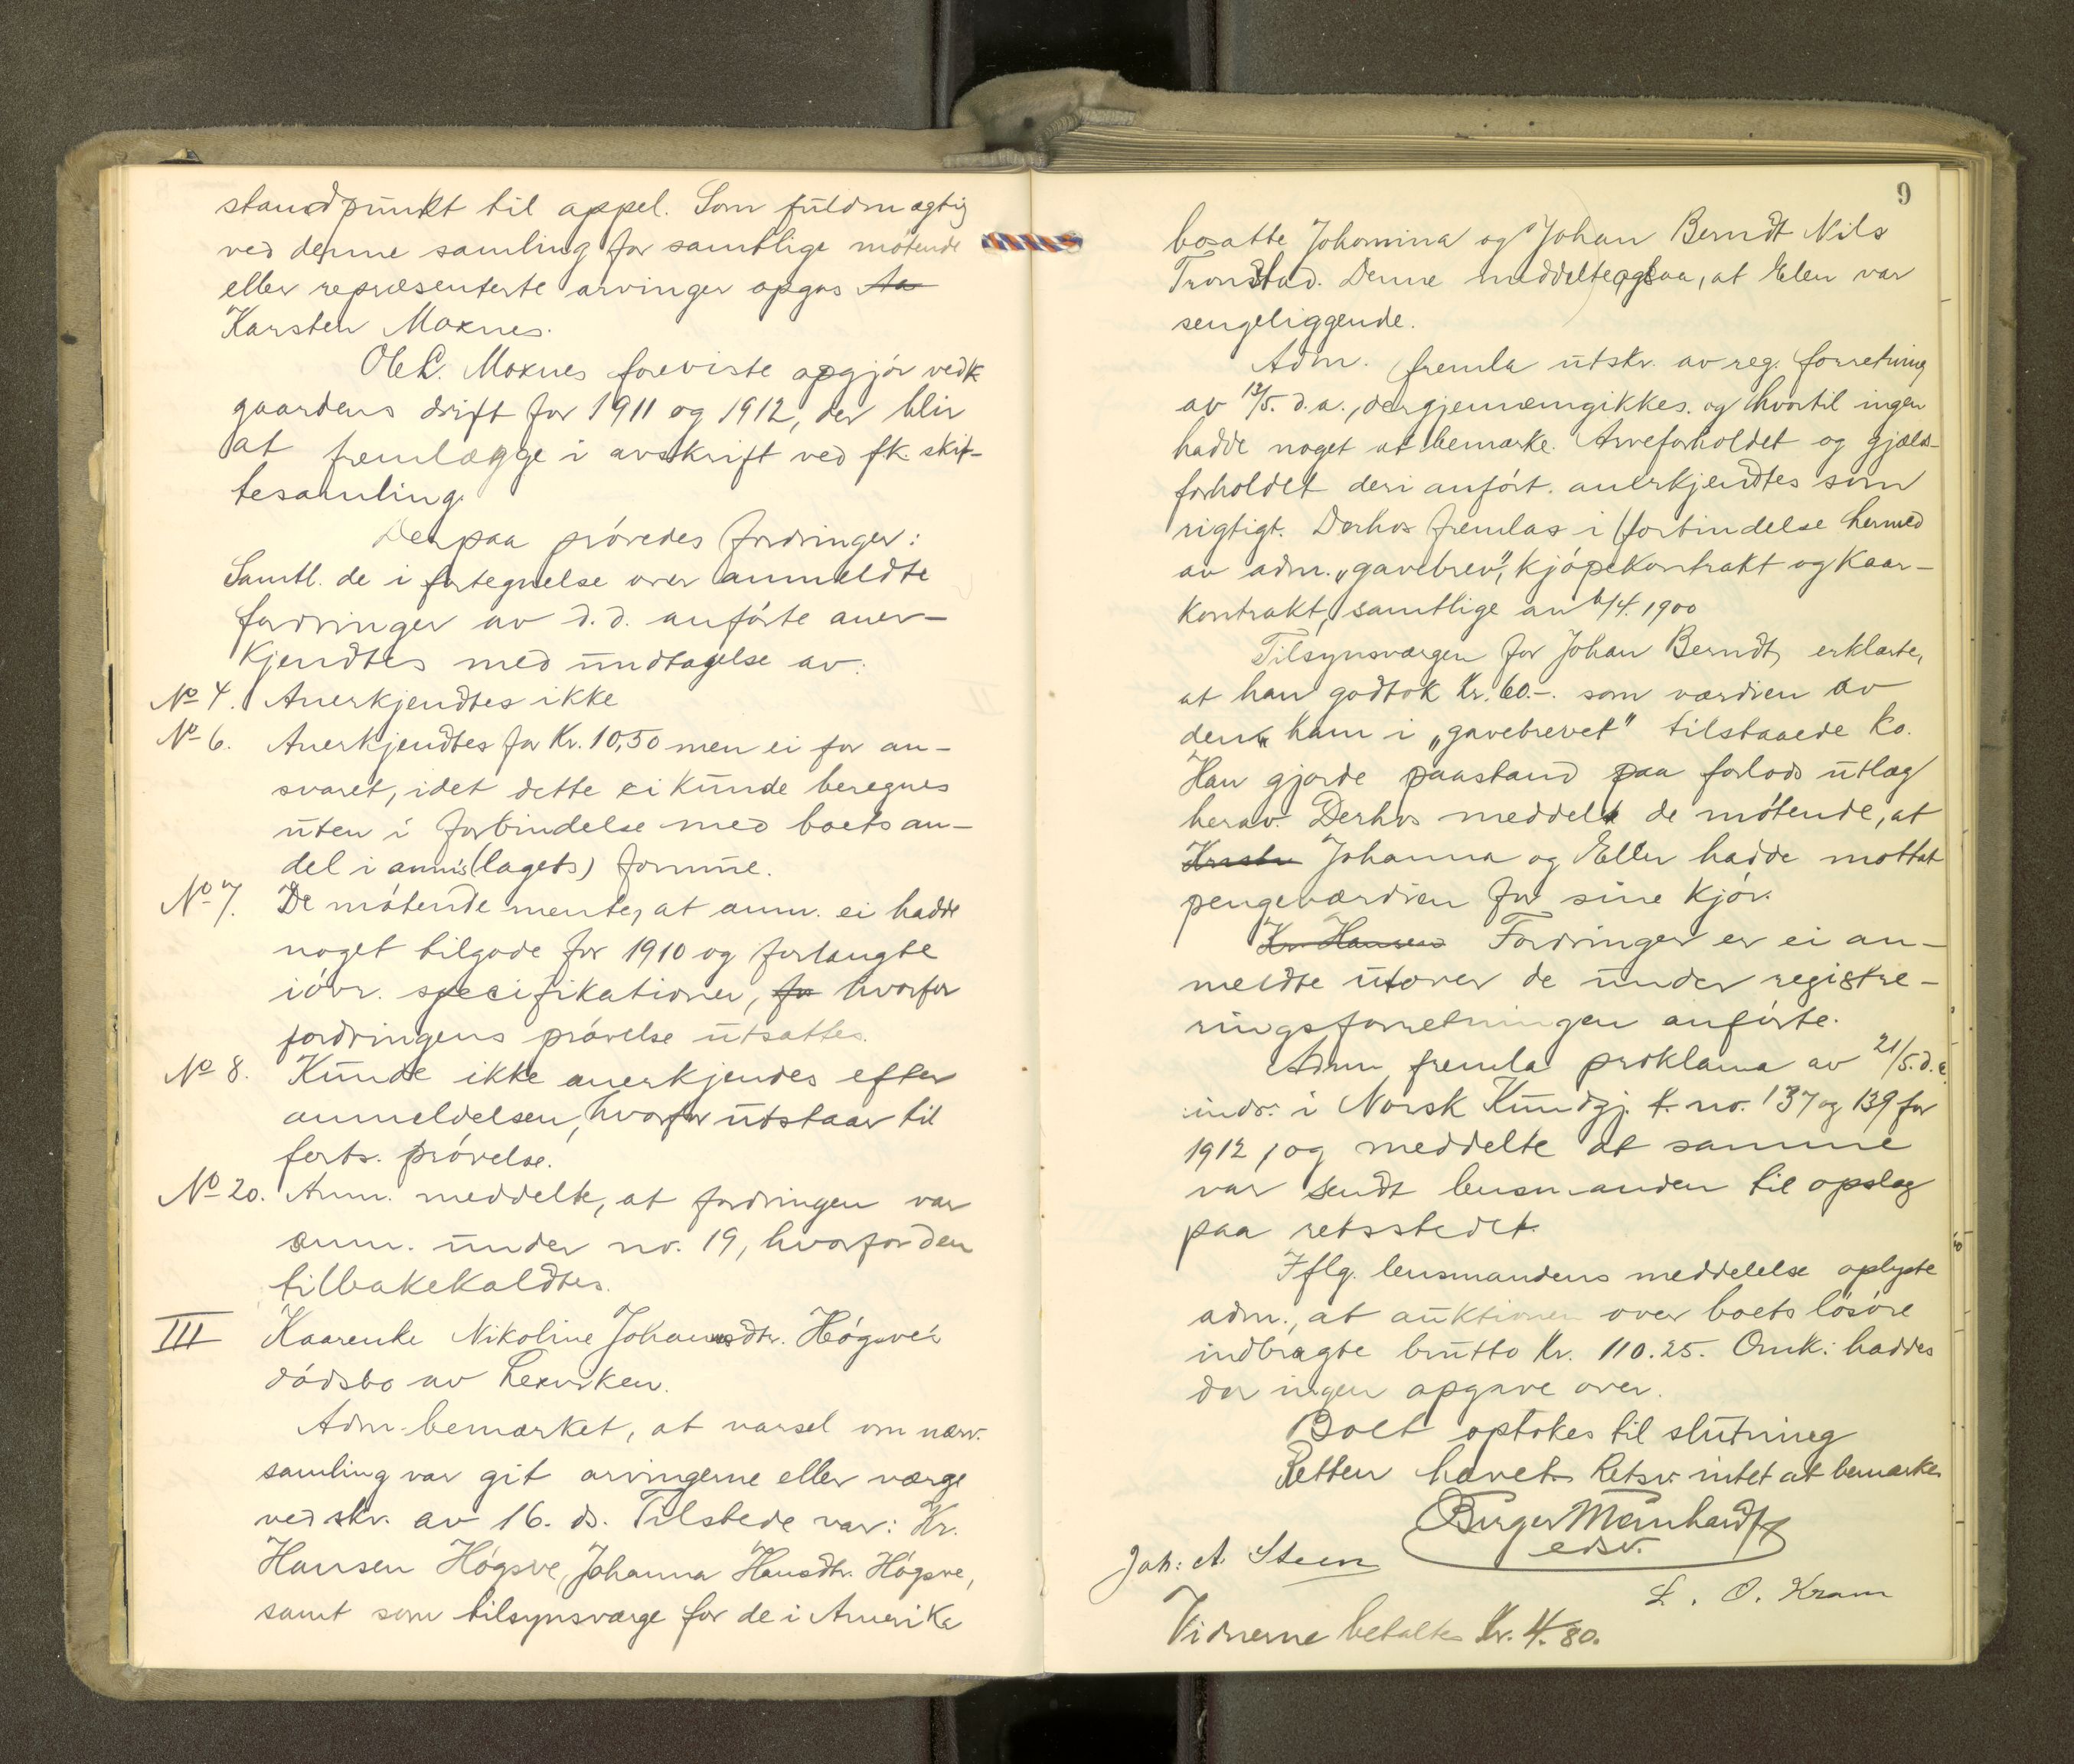 standpunkt til appel. Som fuldmægtig
ved denne samling for samtlige mötende
eller repræsenterte arvinger opgas
Karsten Moxnes.
Ole L. Moxnes foreviste opgjör vedk
gaardens drift for 1911 og 1912, der blir
at fremlægge i avskrift ved fk. skif-
tesamling.
Derpaa prövedes fordringer:
Samtl. de i fortegnelse over anmeldte
fordringer av d.d. anförte aner-
kjendtes med undtagelse av:
No 4. Anerkjendtes ikke
No 6. Anerkjendtes for Kr. 10,50 men ei for an-
svaret, idet dette ei kunde beregnes
uten i forbindelse med boets an-
del i anm's (lagets) formue.
No 7. De mötende mente, at anm. ei hadde
noget tilgode for 1910 og forlangte
iövr. specifikationer, for hvorfor
fordringens prövelse utsattes.
No 8. Kunde ikke anerkjendes efter
anmeldelsen, hvorfor utstaar til
forts. prövelse.
No 20. Anm. meddelte, at fordringen var
anm. under no. 19, hvorfor den
tilbakekaldtes.
III Kaarenke Nikoline Johannsdtr. Högsve's
dödsbo av Lexviken.
Adm. bemærket, at varsel om nærv.
samling var git arvingerne eller værge
ved skr. av 16. ds. Tilstede var: Kr.
Hansen Högsve, Johanna Hansdtr. Högsve,
samt som tilsynsværge for de i Amerika
9
bosatte Johomina og Johan Berndt Nils
Tronstad. Denne meddelte ogsaa, at Elen var
sengeliggende.
Adm. fremla utskr. av reg. forretning
av 12/5. d.a., der gjennemgikkes. og hvortil ingen
hadde noget at bemærke. Arveforholdet og gjælds-
forholdet deri anfört. anerkjendtes som
rigtigt. Derhos fremlas i forbindelse hermed
av adm. "gavebrev", kjöpekontrakt og Kaar-
kontrakt, samtlige av 6/4. 1900
Tilsynsværgen for Johan Berndt, erklærte,
at han godtok Kr. 60.-. som værdien av
den ham i "gavebrevet" tilstaaede ko.
Han gjorde paastand paa forlods utlæg
herav. Derhos meddelte de mötende, at
Johanna og Ellen hadde mottat
pengeværdien for sine kjör.
Kr. Hansen Fordringer er ei an-
meldte utover de under registre-
ringsforretningen anförte.
Adm fremla proklama av 21/5. d.a.
indr. i Norsk Kundgj. t. no. 137 og 139 for
1912, og meddelte at samme
var sendt lensmanden til opslag
paa retsstedet.
Iflg. lensmandens meddelelse oplyste
adm., at auktionen over boets lösöre
indbragte brutto Kr. 110.25. Omk. haddes
der ingen opgave over.
Boet optokes til slutning
Retten hævet. Retsv. intet at bemærke.
Birger Meinhardt
edsv.
Joh: A. Steen
L. O. Kram
Vidnerne betaltes Kr. 4.80.